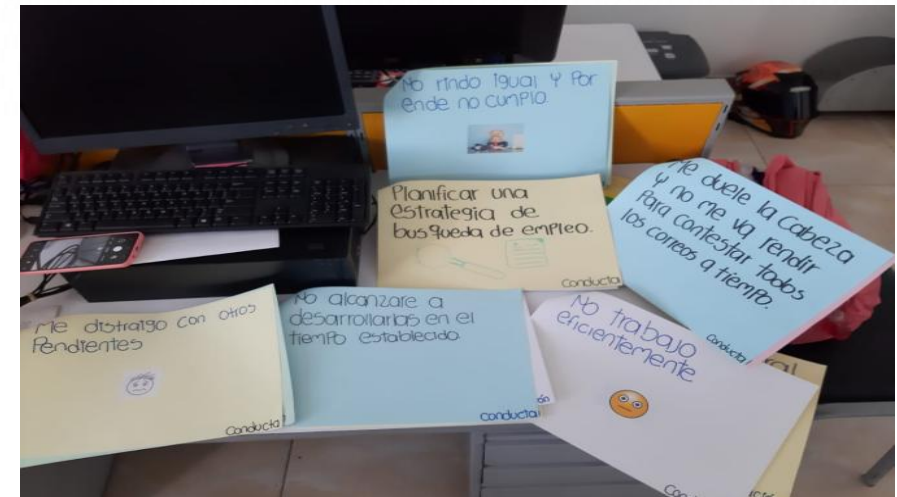 No rindo igual y por
ende no cumplo.
Planificar una
estrategia de
busqueda de empleo.
Conducta
Me duele la Cabeza
y no me va rendir
Para contestar todos
los correos a tiempo.
Conducta
Me distraigo con otros
Pendientes
Conducta
No alcanzare a
desarrollarlas en el
tiempo establecido.
conducta
No trabajo
eficientemente